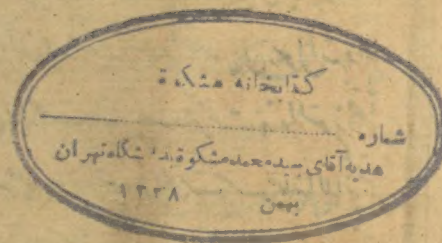 کتابخانه مشکوة
شماره
هدیه آقای سیدمحمدمشکوة بدانشگاه تهران
بهمن ۱۳۲۸